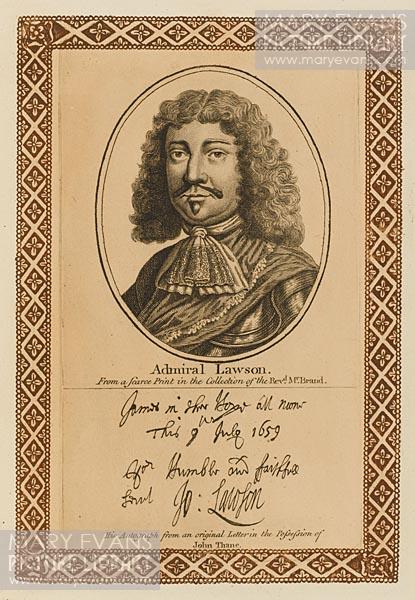 MARY EVANS
www.maryevans.com
Admiral Lawson.
From a scarce Print in the Collection of the Revd. Mr. Brand.
James in the Hope att noone
This 9th July 1659
Yor Humble and faithfull
Servt Jo: Lawson
His Autograph from an original Letter in the Possession of
John Thane.
MARY EVANS
www.maryevans.com